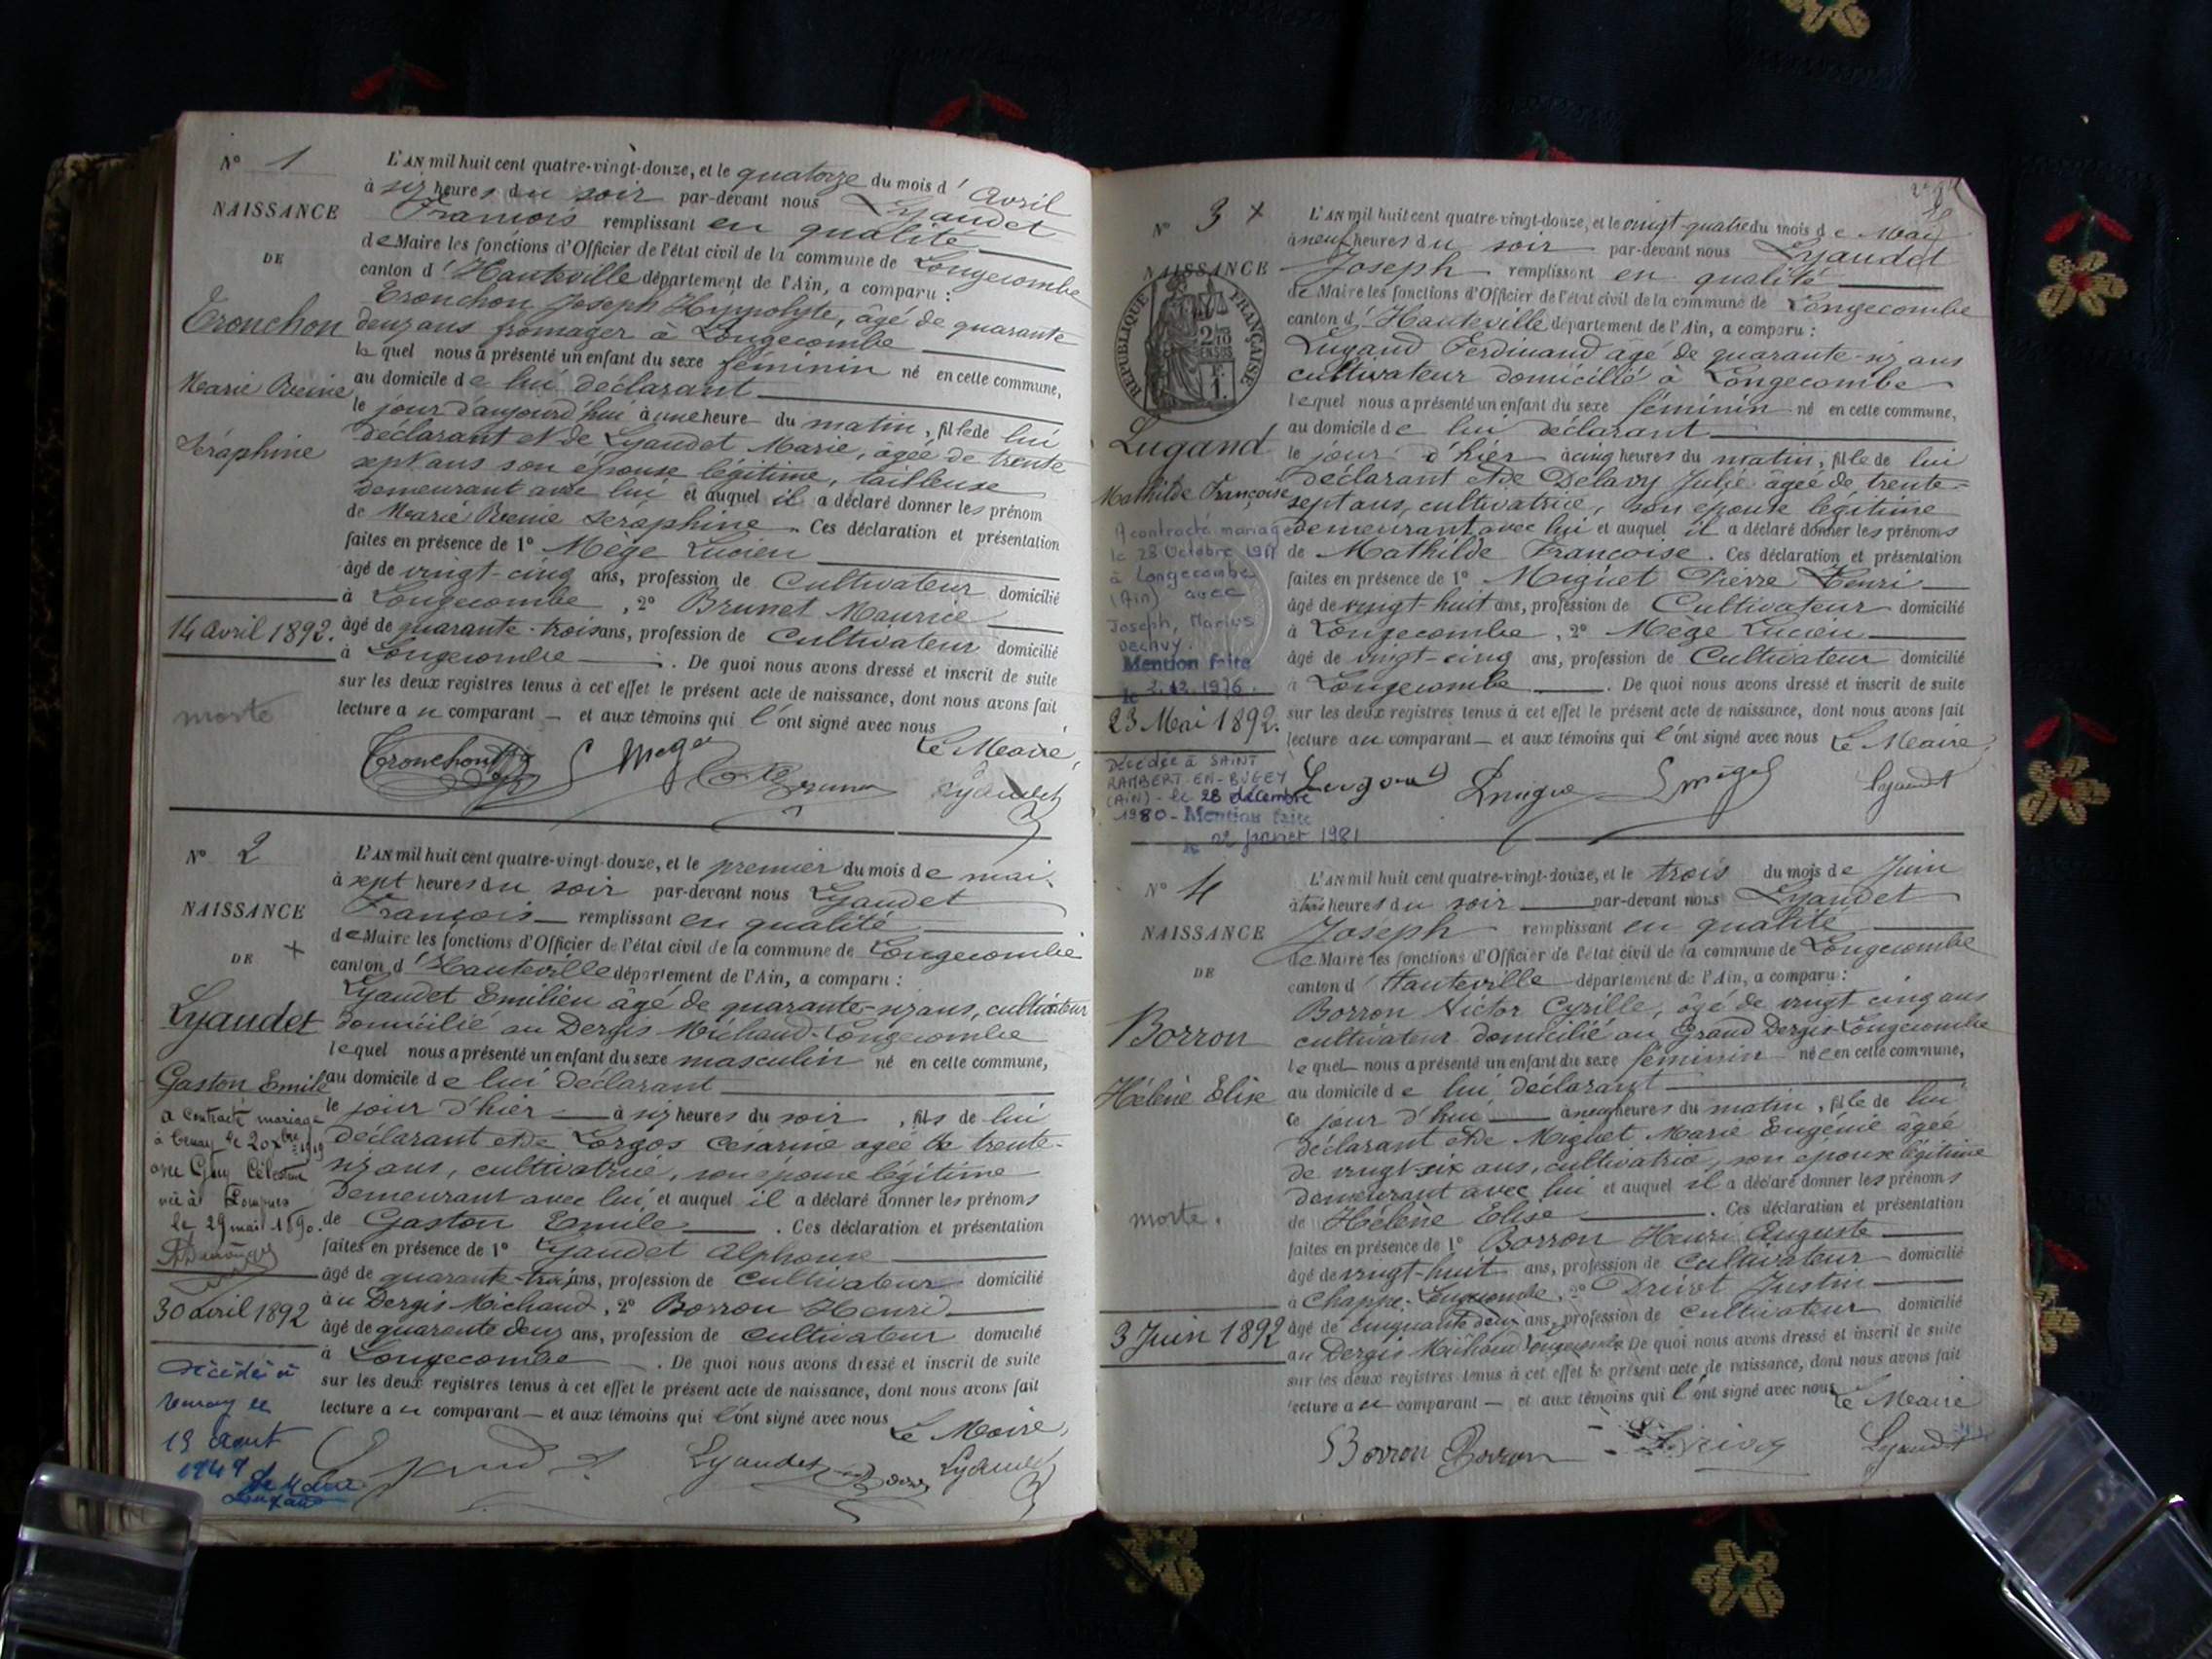 N° 1
NAISSANCE
DE
Tronchon
Marie Reine
Séraphine
14 Avril 1892.
morte
L'AN mil huit cent quatre-vingt-douze, et le quatorze du mois d'Avril
à six heures du soir par-devant nous Lyaudet
François remplissant en qualité
de Maire les fonctions d'Officier de l'état civil de la commune de Longecombe
canton d'Hauteville département de l'Ain, a comparu :
Tronchon Joseph Hyppolyte, âgé de quarante
deux ans fromager à Longecombe
lequel nous a présenté un enfant du sexe féminin né en cette commune,
au domicile de lui déclarant
le jour d'aujourd'hui à une heure du matin, fille de lui
déclarant et de Lyaudet Marie, âgée de trente
sept ans son épouse légitime, tailleuse
demeurant avec lui et auquel il a déclaré donner les prénom
de Marie Reine Séraphine. Ces déclaration et présentation
faites en présence de 1° Mège Lucien
âgé de vingt-cinq ans, profession de Cultivateur domicilié
à Longecombe, 2° Brunet Maurice
âgé de quarante-trois ans, profession de Cultivateur domicilié
à Longecombe. De quoi nous avons dressé et inscrit de suite
sur les deux registres tenus à cet effet le présent acte de naissance, dont nous avons fait
lecture au comparant et aux témoins qui l'ont signé avec nous
Le Maire,
Tronchon Lyaudet
N° 2
NAISSANCE
DE +
Lyaudet
Gaston Emile
a contracté mariage
à Tenay le 20 Xbre 1919
né à
le 29 mai 1890.
30 avril 1892
décédé à
Tenay le
19 Aout
1949
Le Maire
L'AN mil huit cent quatre-vingt-douze, et le premier du mois de mai
à sept heures du soir par-devant nous Lyaudet
François remplissant en qualité
de Maire les fonctions d'Officier de l'état civil de la commune de Longecombe
canton d'Hauteville département de l'Ain, a comparu :
Lyaudet Emilien âgé de quarante-six ans, cultivateur
domicilié au Dergis Michaud-Longecombe
lequel nous a présenté un enfant du sexe masculin né en cette commune,
au domicile de lui déclarant
le jour d'hier à six heures du soir, fils de lui
déclarant et de Césarine âgée de trente-
six ans, cultivatrice, son épouse légitime
demeurant avec lui et auquel il a déclaré donner les prénoms
de Gaston Emile. Ces déclaration et présentation
faites en présence de 1° Lyaudet Alphonse
âgé de quarante-trois ans, profession de cultivateur domicilié
au Dergis Michaud, 2° Borron Henri
âgé de quarente deux ans, profession de cultivateur domicilié
à Longecombe. De quoi nous avons dressé et inscrit de suite
sur les deux registres tenus à cet effet le présent acte de naissance, dont nous avons fait
lecture au comparant et aux témoins qui l'ont signé avec nous
Le Maire,
Lyaudet Lyaudet
N° 3 +
NAISSANCE
RÉPUBLIQUE FRANÇAISE
Lugand
Mathilde Françoise
A contracté mariage
le 28 Octobre 1911
à Longecombe
(Ain) avec
Joseph, Marius
Mention faite
le 2.12.1976.
23 Mai 1892.
Décédée à SAINT
RAMBERT-EN-BUGEY
(AIN) - le 28 décembre
1980 - Mention faite
le 02 janvier 1981
L'AN mil huit cent quatre-vingt-douze, et le vingt-quatre du mois de Mai
à neuf heures du soir par-devant nous Lyaudet
Joseph remplissant en qualité
de Maire les fonctions d'Officier de l'état civil de la commune de Longecombe
canton d'Hauteville département de l'Ain, a comparu :
Lugand Ferdinand âgé de quarante-six ans
cultivateur domicilié à Longecombe
lequel nous a présenté un enfant du sexe féminin né en cette commune,
au domicile de lui déclarant
le jour d'hier à cinq heures du matin, fille de lui
déclarant et de Delavy Julie âgée de trente-
sept ans, cultivatrice, son épouse légitime
demeurant avec lui et auquel il a déclaré donner les prénoms
de Mathilde Françoise. Ces déclaration et présentation
faites en présence de 1° Miguet Pierre Henri
âgé de vingt-huit ans, profession de Cultivateur domicilié
à Longecombe, 2° Mège Lucien
âgé de vingt-cinq ans, profession de Cultivateur domicilié
à Longecombe. De quoi nous avons dressé et inscrit de suite
sur les deux registres tenus à cet effet le présent acte de naissance, dont nous avons fait
lecture au comparant et aux témoins qui l'ont signé avec nous Le Maire,
Lugand Lyaudet
N° 4
NAISSANCE
DE
Borron
Hélène Elise
morte.
3 Juin 1892
L'AN mil huit cent quatre-vingt-douze, et le trois du mois de Juin
à trois heures du soir par-devant nous Lyaudet
Joseph remplissant en qualité
de Maire les fonctions d'Officier de l'état civil de la commune de Longecombe
canton d'Hauteville département de l'Ain, a comparu :
Borron Victor Cyrille, âgé de vingt cinq ans
cultivateur domicilié au Grand Dergis-Longecombe
lequel nous a présenté un enfant du sexe féminin née en cette commune,
au domicile de lui déclarant
ce jour d'hui à neuf heures du matin, fille de lui
déclarant et de Miguet Marie Eugénie âgée
de vingt-six ans, cultivatrice, son épouse légitime
demeurant avec lui et auquel il a déclaré donner les prénoms
de Hélène Elise. Ces déclaration et présentation
faites en présence de 1° Borron Henri Auguste
âgé de vingt-huit ans, profession de cultivateur domicilié
à Chappe-Longecombe, 2° Drivet Justin
âgé de cinquante deux ans, profession de cultivateur domicilié
au Dergis Michaud Longecombe De quoi nous avons dressé et inscrit de suite
sur les deux registres tenus à cet effet le présent acte de naissance, dont nous avons fait
lecture au comparant et aux témoins qui l'ont signé avec nous Le Maire
Borron Borron Lyaudet